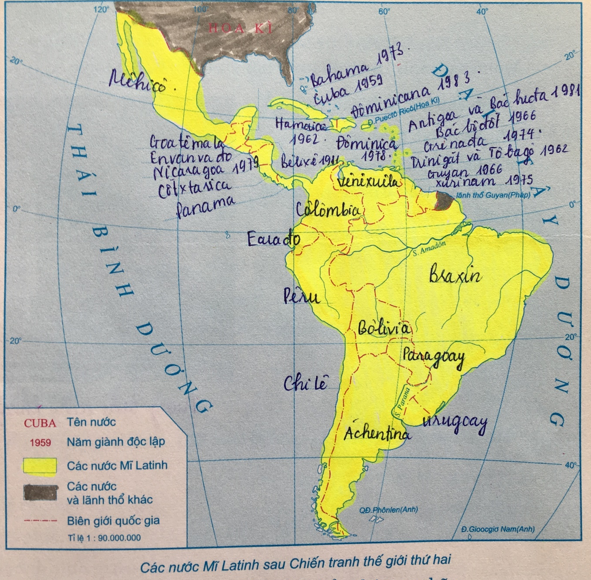 120°
100°
80°
60°
40°
HOA KÌ
20°
20°
Mêhicô
Bahama 1973
Cuba 1959
Đôminicana 1983
Đ.Puectô Ricô(Hoa Kì)
Hamaica
1962
Antigoa và Bác buđa 1981
Bác bađốt 1966
Grênada 1974
Đôminica
1978
Triniđát và Tôbagô 1962
Guyan 1966
Xurinam 1975
Goatêmala
Envanvađo
Nicaragoa 1979
Côixtarica
Panama
Bêlixê 1981
Vênêxuêla
lãnh thổ Guyan(Pháp)
ĐẠI TÂY DƯƠNG
THÁI BÌNH DƯƠNG
0°
0°
Côlômbia
Êcuađo
S. Amadôn
Braxin
Pêru
Bôlivia
20°
20°
Paragoay
Chilê
S. Parana
Urugoay
Áchentina
40°
QĐ.Phônlen(Anh)
Đ.Gioocgiơ Nam(Anh)
CUBA Tên nước
1959 Năm giành độc lập
Các nước Mĩ Latinh
Các nước
và lãnh thổ khác
Biên giới quốc gia
Tỉ lệ 1 : 90.000.000
Các nước Mĩ Latinh sau Chiến tranh thế giới thứ hai